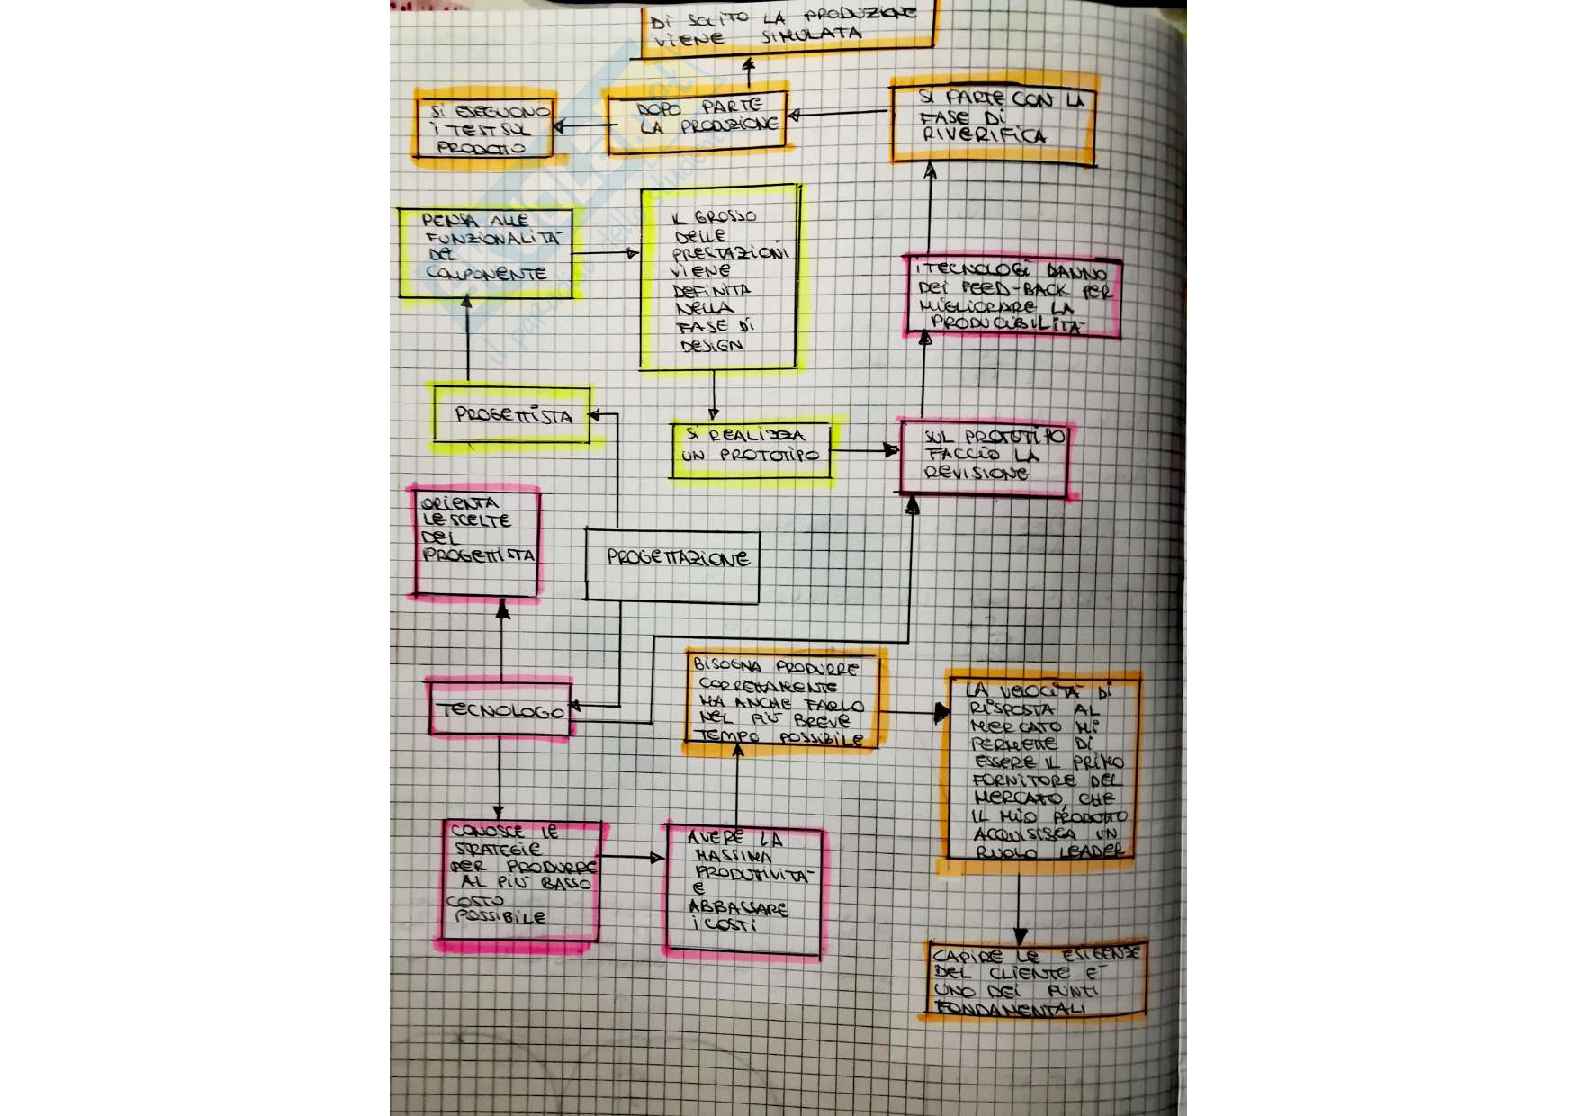 DI SOLITO LA PRODUZIONE
VIENE SIMULATA
SI ESEGUONO
I TEST SUL
PRODOTTO
DOPO PARTE
LA PRODUZIONE
SI PARTE CON LA
FASE DI
RIVERIFICA
PENSA ALLE
FUNZIONALITA'
DEL
COMPONENTE
IL GROSSO
DELLE
PRESTAZIONI
VIENE
DEFINITA
NELLA
FASE DI
DESIGN
I TECNOLOGI DANNO
DEI FEED-BACK PER
MIGLIORARE LA
PRODUCIBILITA'
PROGETTISTA
SI REALIZZA
UN PROTOTIPO
SUL PROTOTIPO
FACCIO LA
REVISIONE
ORIENTA
LE SCELTE
DEL
PROGETTISTA
PROGETTAZIONE
TECNOLOGO
BISOGNA PRODURRE
CORRETTAMENTE
MA ANCHE FARLO
NEL PIÙ BREVE
TEMPO POSSIBILE
LA VELOCITÀ DI
RISPOSTA AL
MERCATO MI
PERMETTE DI
ESSERE IL PRIMO
FORNITORE DEL
MERCATO, CHE
IL MIO PRODOTTO
ACQUISISCA UN
RUOLO LEADER
CONOSCE LE
STRATEGIE
PER PRODURRE
AL PIÙ BASSO
COSTO
POSSIBILE
AVERE LA
MASSIMA
PRODUTTIVITA'
E
ABBASSARE
I COSTI
CAPIRE LE ESIGENZE
DEL CLIENTE E'
UNO DEI PUNTI
FONDAMENTALI